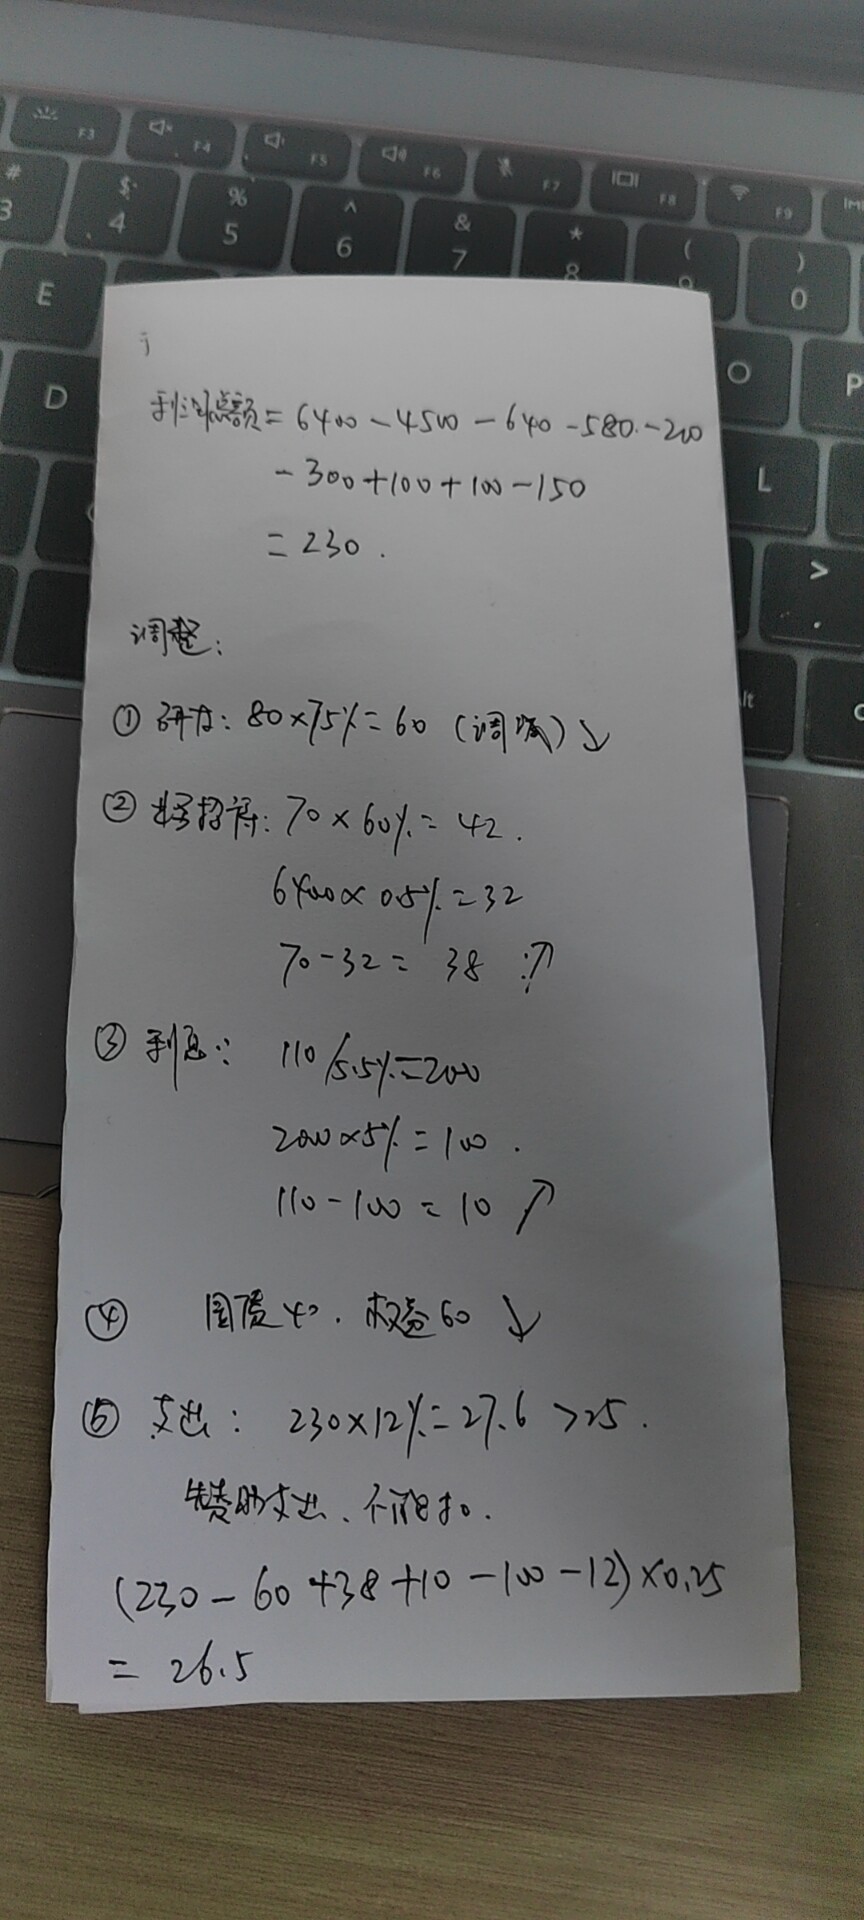 F3 F4 F5 F6 F7 F8 F9
# 3 $ 4 % 5 ^ 6 & 7 * 8 ( 9 ) 0
E O P
D L
> .
利润总额=6400-4500-640-580-200
-300+100+100-150
=230.
调整:
① 研发: 80×75%=60 (调减)↓
② 业务招待: 70×60%=42.
6400×0.5%=32
70-32= 38 ↗
③ 利息: 110/5.5%=2000
2000×5%=100.
110-100=10 ↗
④ 国债40. 权益60 ↓
⑤ 支出: 230×12%=27.6 >25.
赞助支出、不能扣.
(230-60+38+10-100-12)×0.25
= 26.5